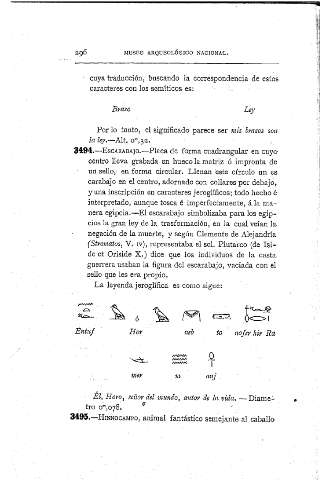 296 MUSEO ARQUEOLÓGICO NACIONAL.
cuya traducción, buscando la correspondencia de estos
caracteres con los semíticos es:
Brazo Ley
Por lo tanto, el significado parece ser mis brazos son
la ley.—Alt. 0m,32.
3494.—ESCARABAJO.—Pieza de forma cuadrangular en cuyo
centro lleva grabada en hueco la matriz ó impronta de
un sello, en forma circular. Llenan este círculo un es
carabajo en el centro, adornado con collares por debajo,
y una inscripción en caracteres jeroglíficos; todo hecho é
interpretado, aunque tosca é imperfectamente, á la ma-
nera egipcia.—El escarabajo simbolizaba para los egip-
cios la gran ley de la trasformación, en la cual veían la
negación de la muerte, y según Clemente de Alejandría
(Stromatos, V. IV), representaba el sol. Plutarco (de Isi-
de et Osiride X,) dice que los individuos de la casta
guerrera usaban la figura del escarabajo, vaciada con el
sello que les era propio.
La leyenda jeroglífica es como sigue:
Entuf Hor neb to nofer hir Ra
mer u anj
Él, Horo, señor del mundo, autor de la vida. — Diáme-
tro 0m,078.
3495.—HIPPOCAMPO, animal fantástico semejante al caballo